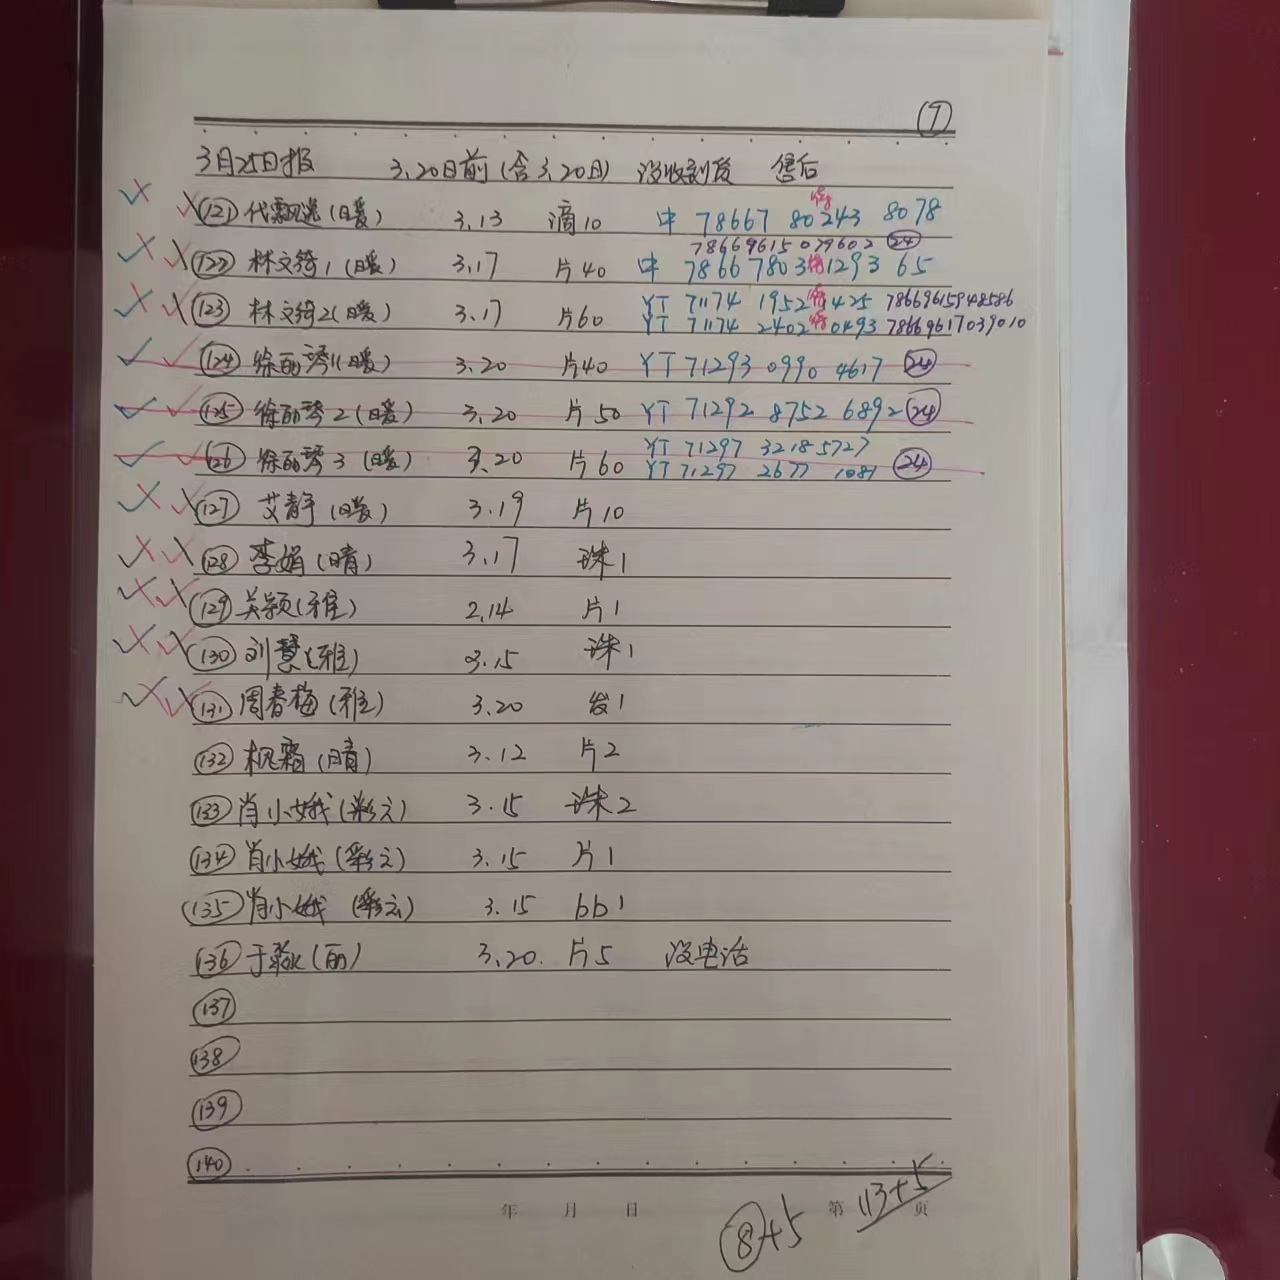 ⑦
3月25日报 3.20日前(含3.20日) 没收到货 售后
(121) 代飘逸(暖) 3.13 滴10 中 78667 80243 8078
78669615079602 (24)
(122) 林文绮1(暖) 3.17 片40 中 7866 7803 1293 65
(123) 林文绮2(暖) 3.17 片60 YT 71174 1952 425 78669615948586
YT 71174 2402 0493 78669617039010
(124) 徐丽琴1(暖) 3.20 片40 YT 71293 0990 4617 (24)
(125) 徐丽琴2(暖) 3.20 片50 YT 71292 8752 6892 (24)
YT 71297 3218 5727
(126) 徐丽琴3(暖) 3.20 片60 YT 71297 2677 1081 (24)
(127) 艾静(暖) 3.19 片10
(128) 李娟(晴) 3.17 珠1
(129) 吴颖(雅) 2.14 片1
(130) 刘慧(雅) 3.15 珠1
(131) 周春梅(雅) 3.20 发1
(132) 霜(晴) 3.12 片2
(133) 肖小娥(彩云) 3.15 珠2
(134) 肖小娥(彩云) 3.15 片1
(135) 肖小娥(彩云) 3.15 bb1
(136) 于(丽) 3.20. 片5 没电话
(137)
(138)
(139)
(140)
年 月 日 第 113+5 页
⑧+5